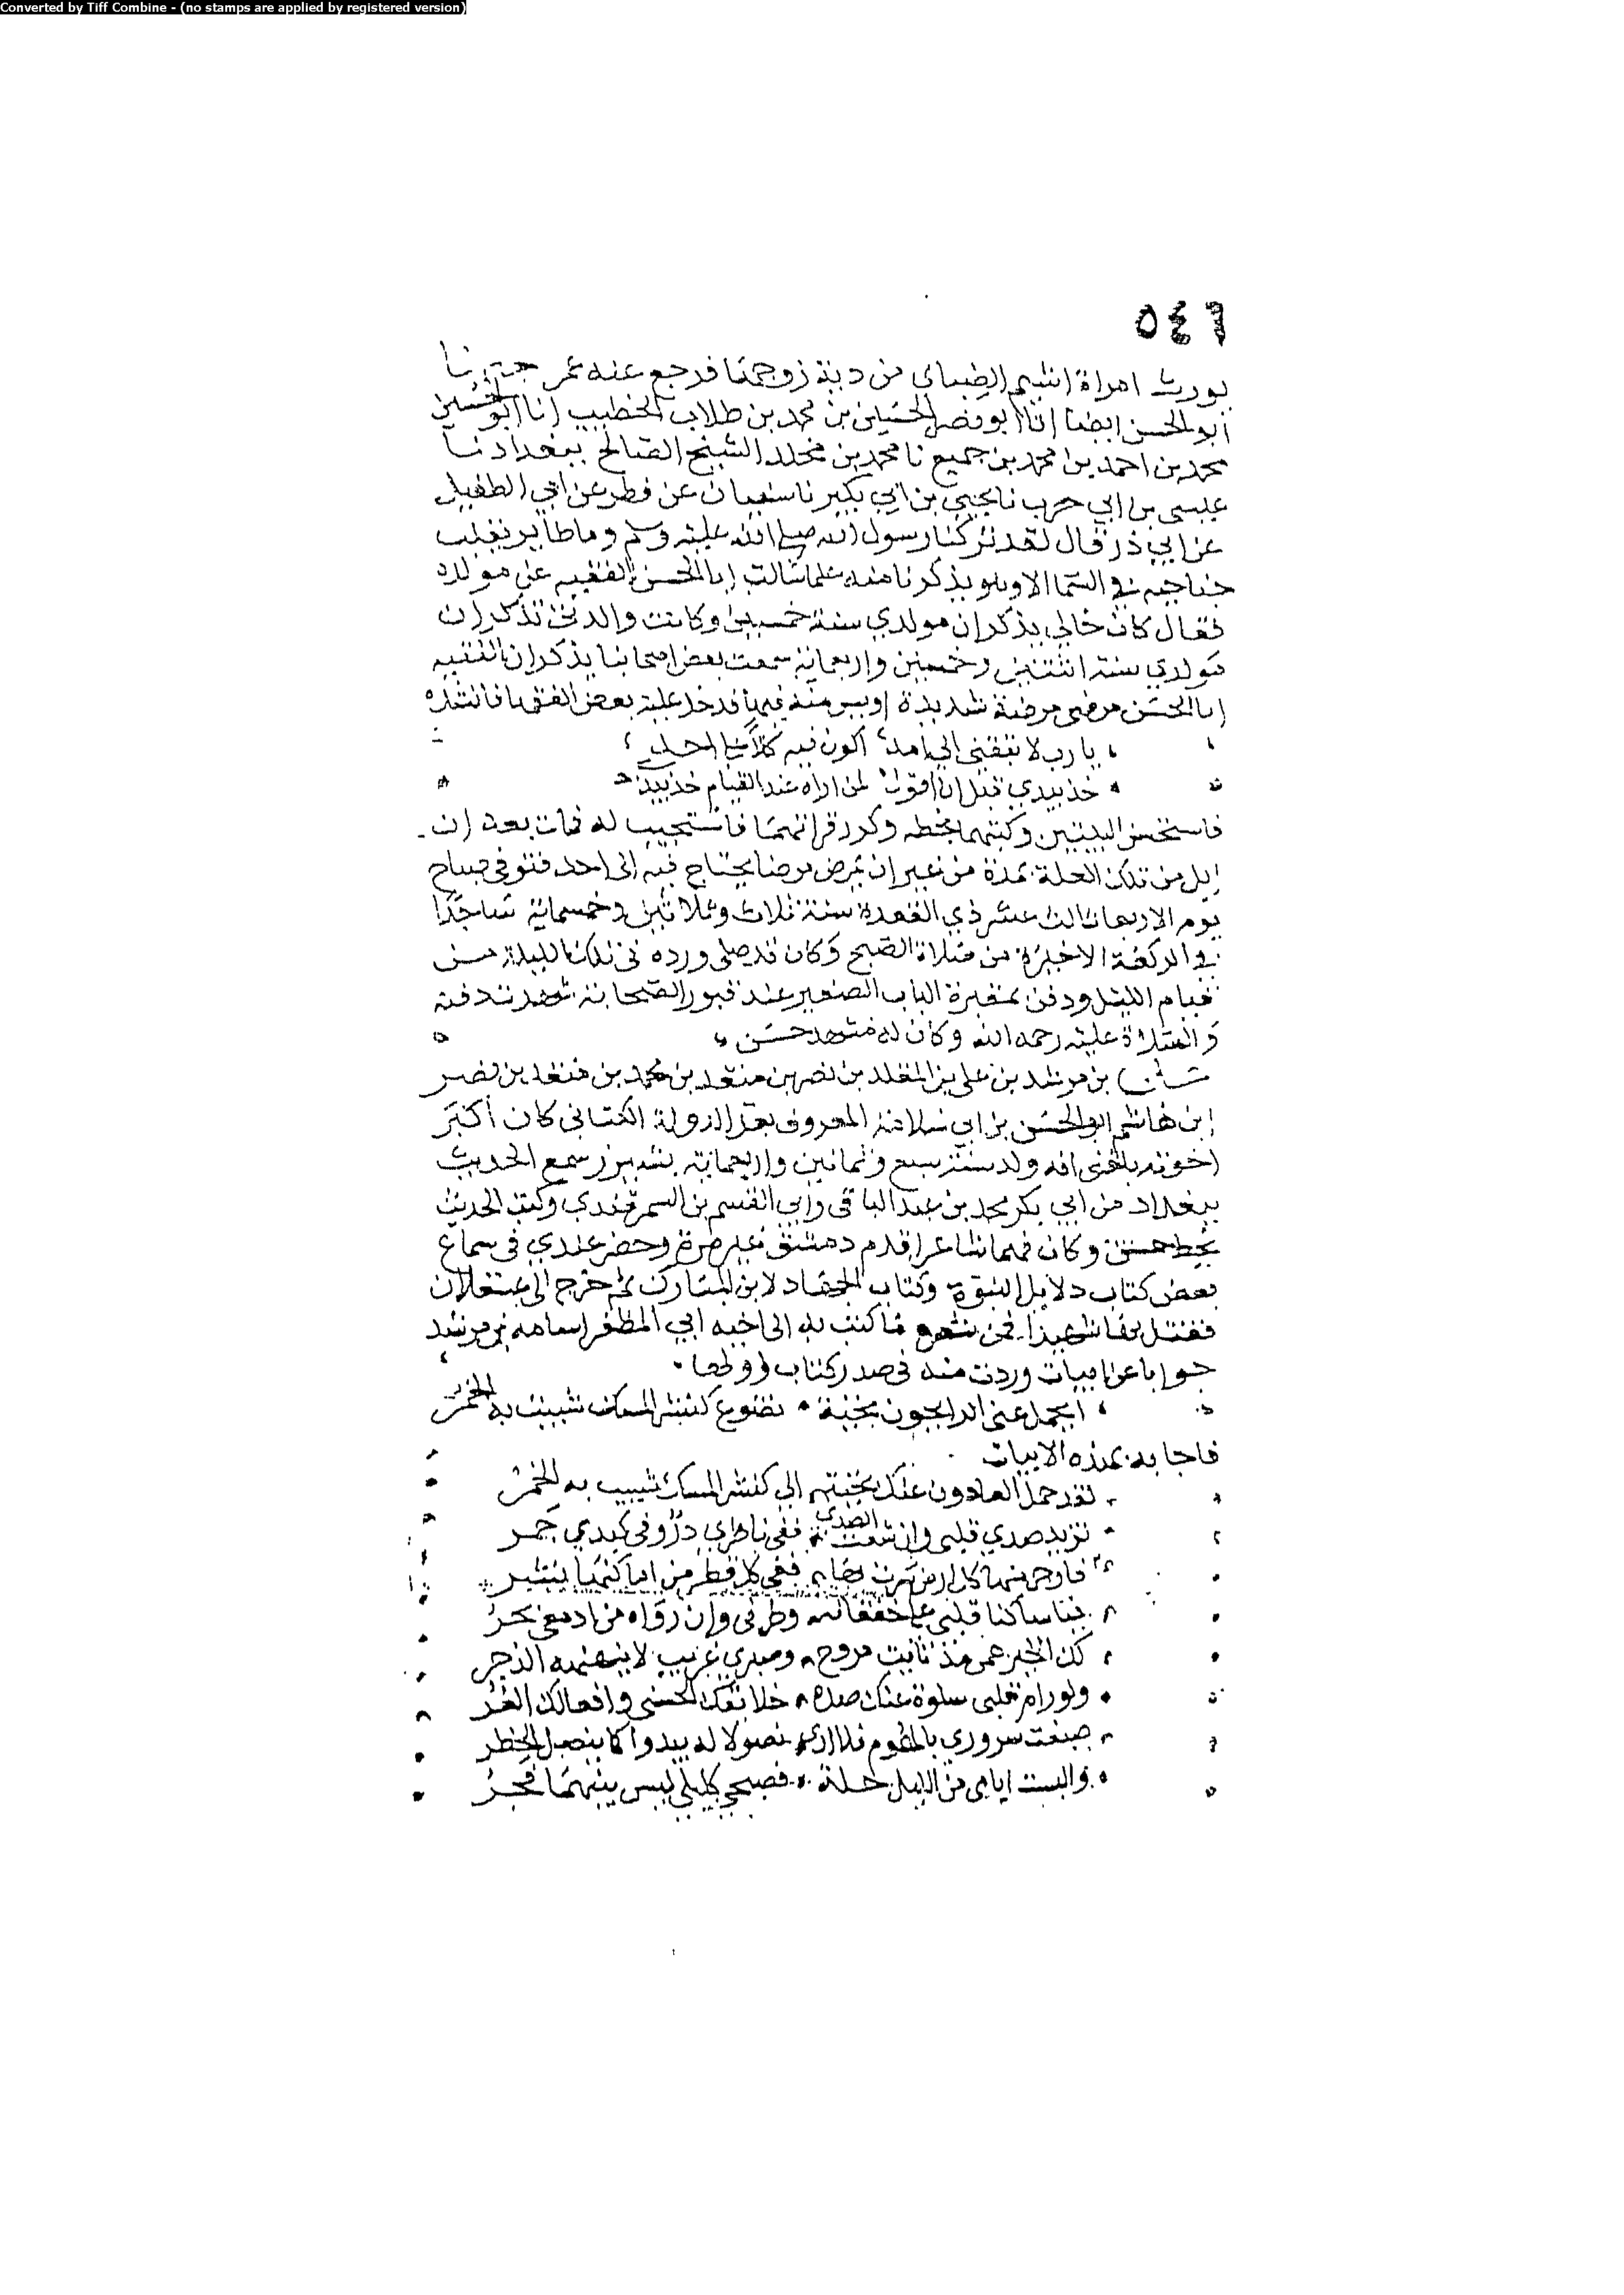 Converted by Tiff Combine - (no stamps are applied by registered version)
٥٤٦
يورث امراة اشيم الضبابي من دية زوجها فرجع عنه عمر
ابو الحسن ايضا انا ابو نصر الحسين بن محمد بن طلاب الخطيب انا ابو الحسين
محمد بن احمد بن محمد بن جميع نا محمد بن مخلد الشيخ الصالح ببغداد نا
عيسى بن ابي حرب نا يحيى بن ابي بكير نا سفيان عن فطر عن ابي الطفيل
عن ابي ذر قال لقد تركنا رسول الله صلى الله عليه وسلم وما طاير يقلب
جناحيه في السما الا وهو يذكرنا منه علما سالت ابا الحسن الفقيه عن مولده
فقال كان خالي يذكر ان مولدي سنة خمسين وكانت والدتي تذكر ان
مولدي سنة اثنتين وخمسين واربعماية سمعت بعض اصحابنا يذكر ان الفقيه
ابا الحسن مرض مرضة شديدة اويس منه فيها فدخل عليه بعض الفقها فانشده
يا رب لا تبقني الى امد اكون فيه كلا على احد
خذ بيدي قبل ان اقول لمن اراه عند القيام خذ بيدي
فاستحسن البيتين وكتبهما بخطه وكرر قراتهما فاستجيب له فمات بعد ان
ابل من تلك العلة بمدة من غير ان يمرض مرضا يحتاج فيه الى احد فتوفي صباح
يوم الاربعا ثالث عشر ذي القعدة سنة ثلاث وثلاثين وخمسماية ساجدا
في الركعة الاخيرة من صلاة الصبح وكان قد صلى ورده في تلك الليلة من
قيام الليل ودفن بمقبرة الباب الصغير عند قبور الصحابة شهدت دفنه
والصلاة عليه رحمه الله وكان له مشهد حسن
بن مرشد بن علي بن المقلد بن نصر بن منقد بن محمد بن منقد بن نصر
ابن هاشم ابو الحسن بن ابي سلامة المعروف بعز الدولة الكناني كان اكبر
اخوته بلغني انه ولد سنة سبع وثمانين واربعماية بشيزر سمع الحديث
ببغداد من ابي بكر محمد بن عبد الباقي وابي القسم بن السمرقندي وكتب الحديث
بخط حسن وكان فهما شاعرا قدم دمشق غير مرة وحضر عندي في سماع
بعض كتاب دلايل النبوة وكتاب الجهاد لابن المبارك ثم خرج الى عسقلان
فقتل بها شهيدا فمن شعره ما كتب به الى اخيه ابي المظفر اسامه بن مرشد
جوابا عن ابيات وردت منه في صدر كتاب اولها
ايحمل عني الرايحون تحية تضوع كنشر المسك شيبت به الخمر
فاجابه بهذه الابيات
لقد حمل الغادون عنك تحية الي كنشر المسك شيب به الخمر
تزيد صدي قلبي وان الصدى ففي ناظري در وفي كبدي جمر
ففي كل قطر من
بنا ساكنا قلبي على خفقانه وطرفي وان رواه من ادمعي بحر
لك الخير همي مذ نايت مروح وصبري غريب لا ينهنهه الزجر
ولو رام قلبي سلوة عنك صده خلايقك الحسنى وافعالك الغر
صبغت سروري بالهموم فلا ارى نصولا له يبدو كما ينصل الخطر
والبست ايامي من الليل حلة فصبحي كليلي ليس بينهما فجر